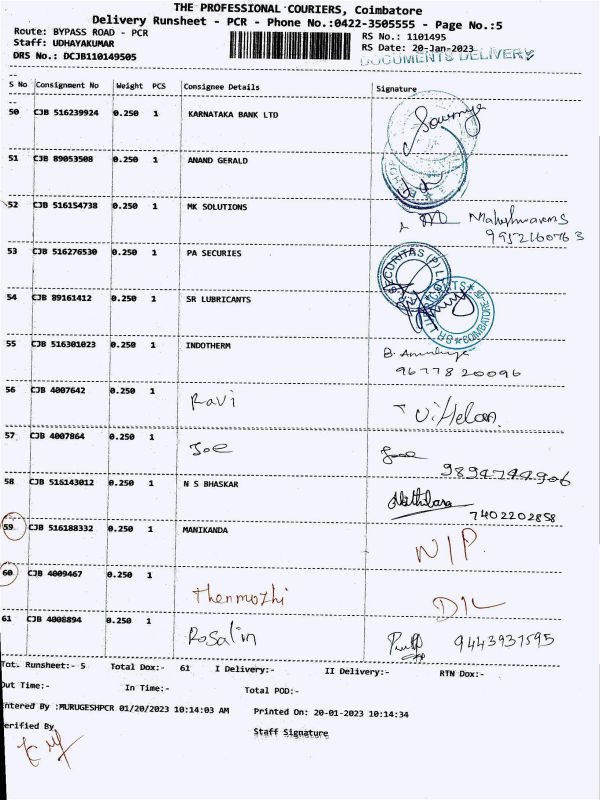 THE PROFESSIONAL COURIERS, Coimbatore
Delivery Runsheet - PCR - Phone No.:0422-3505555 - Page No.:5
Route: BYPASS ROAD - PCR
RS No.: 1101495
Staff: UDHAYAKUMAR
RS Date: 20-Jan-2023
DRS No.: DCJB110149505
DOCUMENTS DELIVERY
S No Consignment No Weight PCS Consignee Details Signature
50 CJB 516239924 0.250 1 KARNATAKA BANK LTD Sowmya
51 CJB 89053508 0.250 1 ANAND GERALD
52 CJB 516154738 0.250 1 MK SOLUTIONS
9952160763
53 CJB 516276530 0.250 1 PA SECURIES SECURITAS (P) L
54 CJB 89161412 0.250 1 SR LUBRICANTS COIMBATORE
55 CJB 516301023 0.250 1 INDOTHERM
9677820096
56 CJB 4007642 0.250 1 Ravi
57 CJB 4007864 0.250 1 Joe
9894744906
58 CJB 516143012 0.250 1 N S BHASKAR
7402202858
59 CJB 516188332 0.250 1 MANIKANDA N/P
60 CJB 4009467 0.250 1 Thenmozhi D/L
61 CJB 4008894 0.250 1 Rosalin 9443937595
Tot. Runsheet:- 5 Total Dox:- 61 I Delivery:- II Delivery:- RTN Dox:-
Out Time:- In Time:- Total POD:-
Entered By :MURUGESHPCR 01/20/2023 10:14:03 AM Printed On: 20-01-2023 10:14:34
Verified By Staff Signature